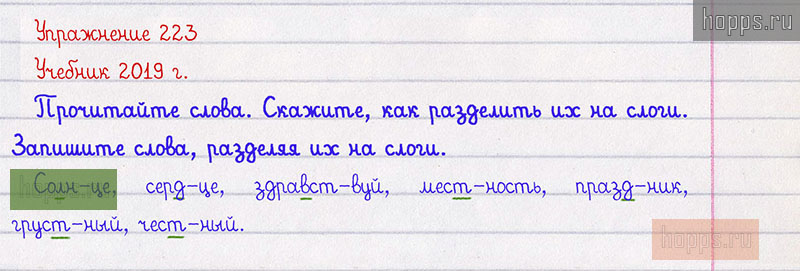 hopps.ru
Упражнение 223
Учебник 2019 г.
Прочитайте слова. Скажите, как разделить их на слоги.
Запишите слова, разделяя их на слоги.
Солн-це, серд-це, здравст-вуй, мест-ность, празд-ник,
груст-ный, чест-ный.
hopps.ru